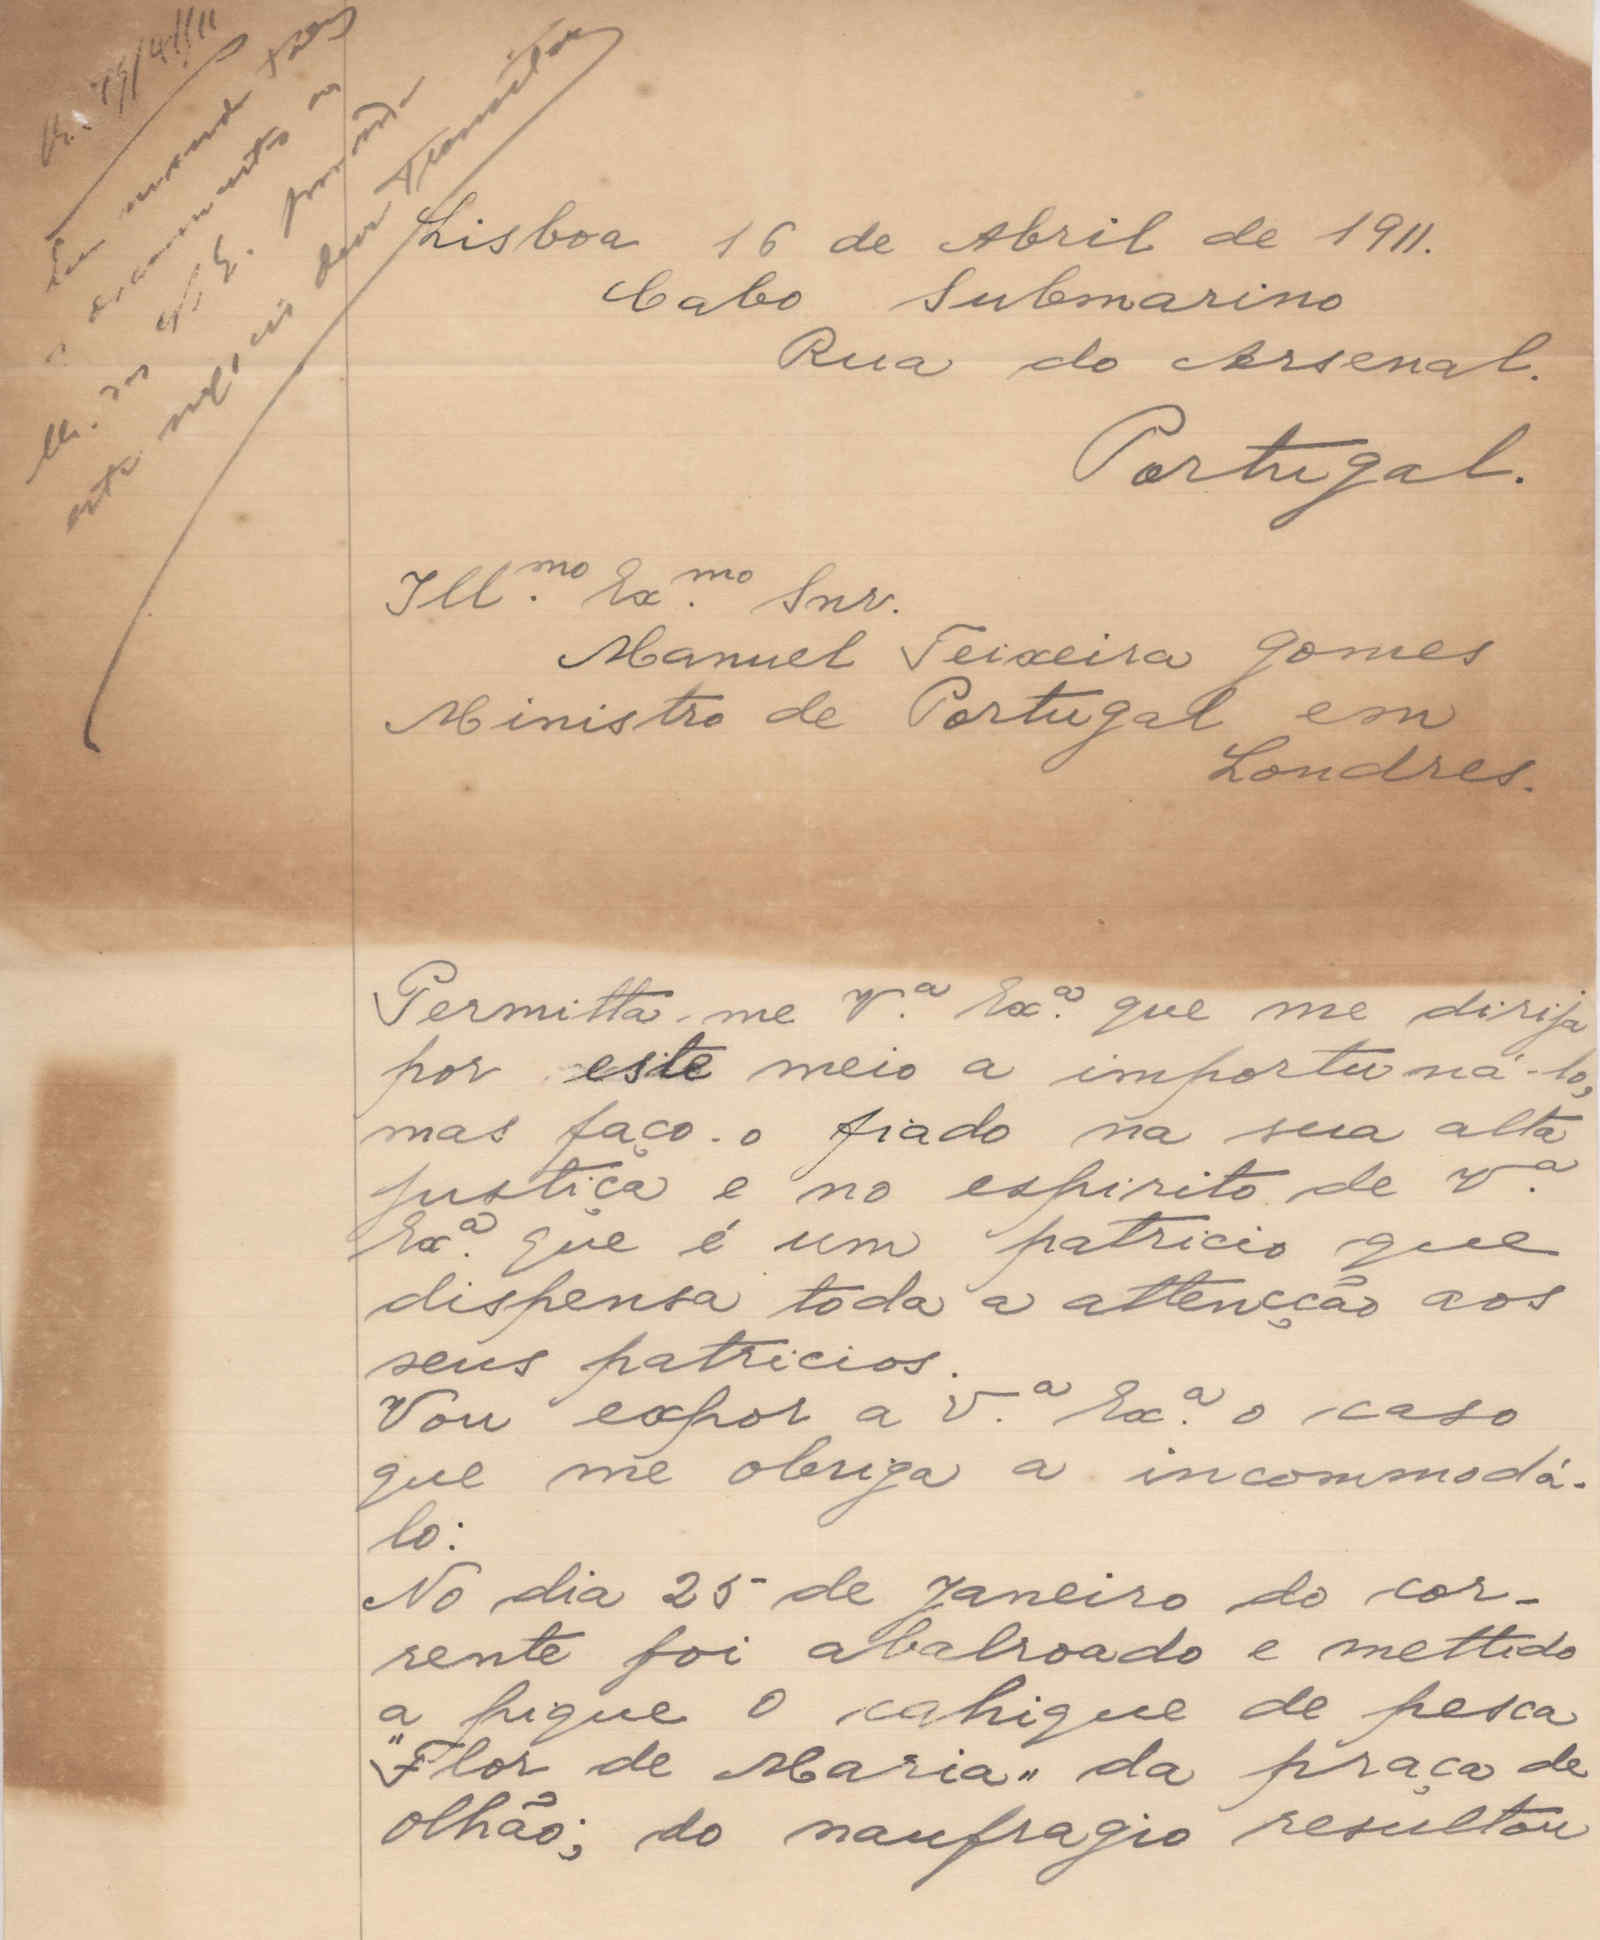 Lisboa 16 de Abril de 1911.
Cabo Submarino
Rua do Arsenal.
Portugal.
Ill.mo Ex.mo Snr.
Manuel Teixeira Gomes
Ministro de Portugal em
Londres.
Permitta-me V.ª Ex.ª que me dirija
por este meio a importuná-lo,
mas faço-o fiado na sua alta
justiça e no espirito de V.ª
Ex.ª que é um patricio que
dispensa toda a attencção aos
seus patricios.
Vou expor a V.ª Ex.ª o caso
que me obriga a incommodá-
lo:
No dia 25 de Janeiro do cor-
rente foi abalroado e mettido
a pique o cahique de pesca
"Flor de Maria" da praça de
Olhão; do naufragio resultou